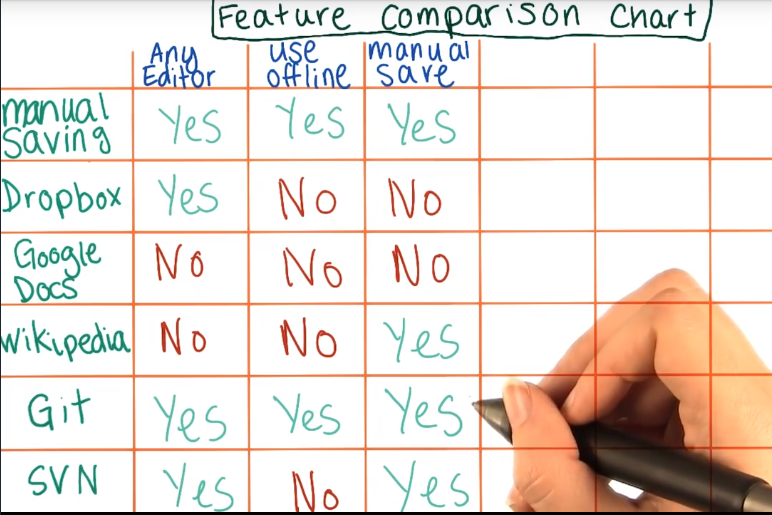 Feature Comparison Chart
Any Editor use offline manual save
manual saving Yes Yes Yes
Dropbox Yes No No
Google Docs No No No
Wikipedia No No Yes
Git Yes Yes Yes
SVN Yes No Yes